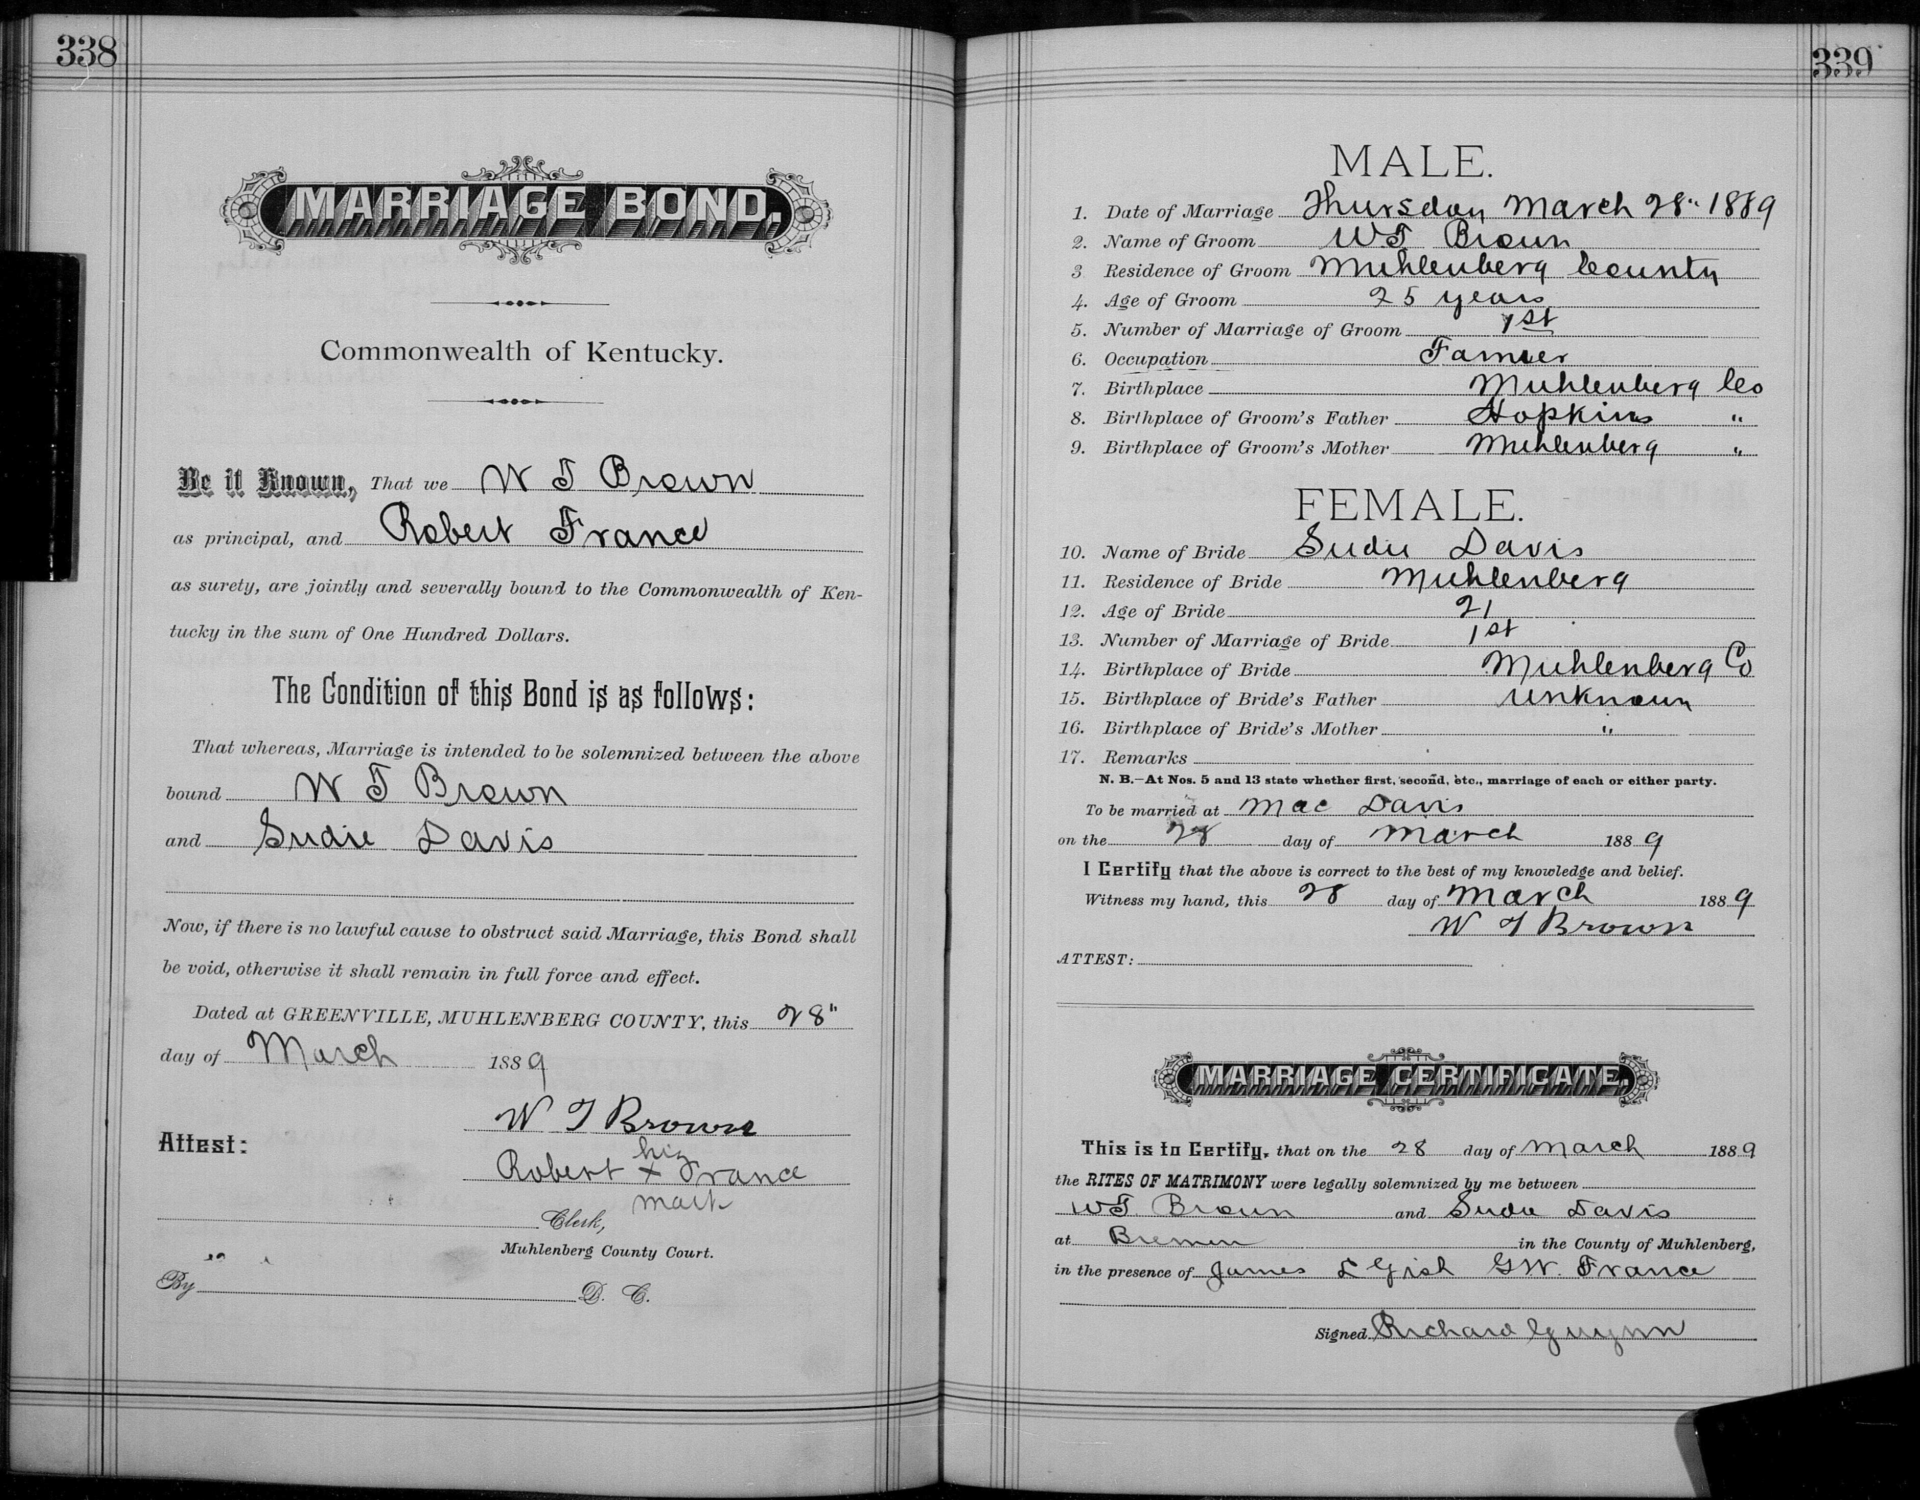 338
MARRIAGE BOND.
Commonwealth of Kentucky.
Be it Known, That we W T Brown
as principal, and Robert France
as surety, are jointly and severally bound to the Commonwealth of Ken-
tucky in the sum of One Hundred Dollars.
The Condition of this Bond is as follows:
That whereas, Marriage is intended to be solemnized between the above
bound W T Brown
and Sudie Davis
Now, if there is no lawful cause to obstruct said Marriage, this Bond shall
be void, otherwise it shall remain in full force and effect.
Dated at GREENVILLE, MUHLENBERG COUNTY, this 28"
day of March 1889
W T Brown
Attest:
his
Robert x France
mark
Clerk,
Muhlenberg County Court.
By D. C.
339
MALE.
1. Date of Marriage Thursday March 28" 1889
2. Name of Groom WT Brown
3 Residence of Groom Muhlenberg County
4. Age of Groom 25 years
5. Number of Marriage of Groom 1st
6. Occupation Farmer
7. Birthplace Muhlenberg Co
8. Birthplace of Groom's Father Hopkins "
9. Birthplace of Groom's Mother Muhlenberg "
FEMALE.
10. Name of Bride Sudie Davis
11. Residence of Bride Muhlenberg
12. Age of Bride 21
13. Number of Marriage of Bride 1st
14. Birthplace of Bride Muhlenberg Co
15. Birthplace of Bride's Father unknown
16. Birthplace of Bride's Mother "
17. Remarks
N. B.—At Nos. 5 and 13 state whether first, second, etc., marriage of each or either party.
To be married at Mac Davis
on the 28 day of March 1889
I Certify that the above is correct to the best of my knowledge and belief.
Witness my hand, this 28 day of March 1889
W T Brown
ATTEST:
MARRIAGE CERTIFICATE.
This is to Certify, that on the 28 day of March 1889
the RITES OF MATRIMONY were legally solemnized by me between
WT Brown and Sudie Davis
at Bremen in the County of Muhlenberg,
in the presence of James L Gish G W. France
Signed Richard Gwynn